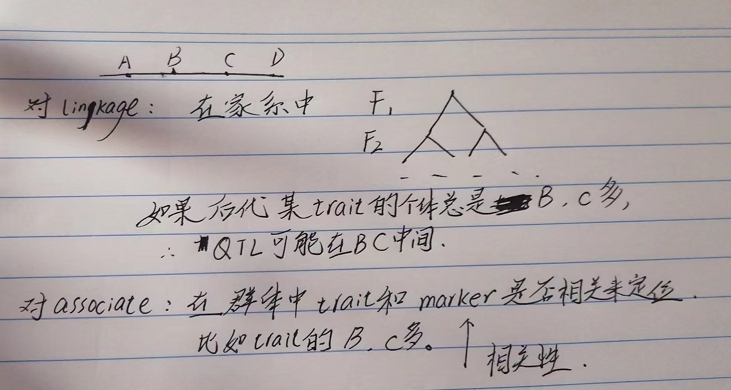 A B C D
对 lingkage: 在家系中 F1
F2
如果后代某trait的个体总是B、C多,
∴ QTL可能在BC中间.
对associate: 在群体中trait和marker是否相关来定位.
比如trait的B、C多。↑相关性.